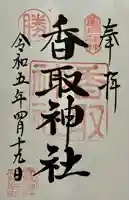 奉拝
香取神社
令和五年四月十九日